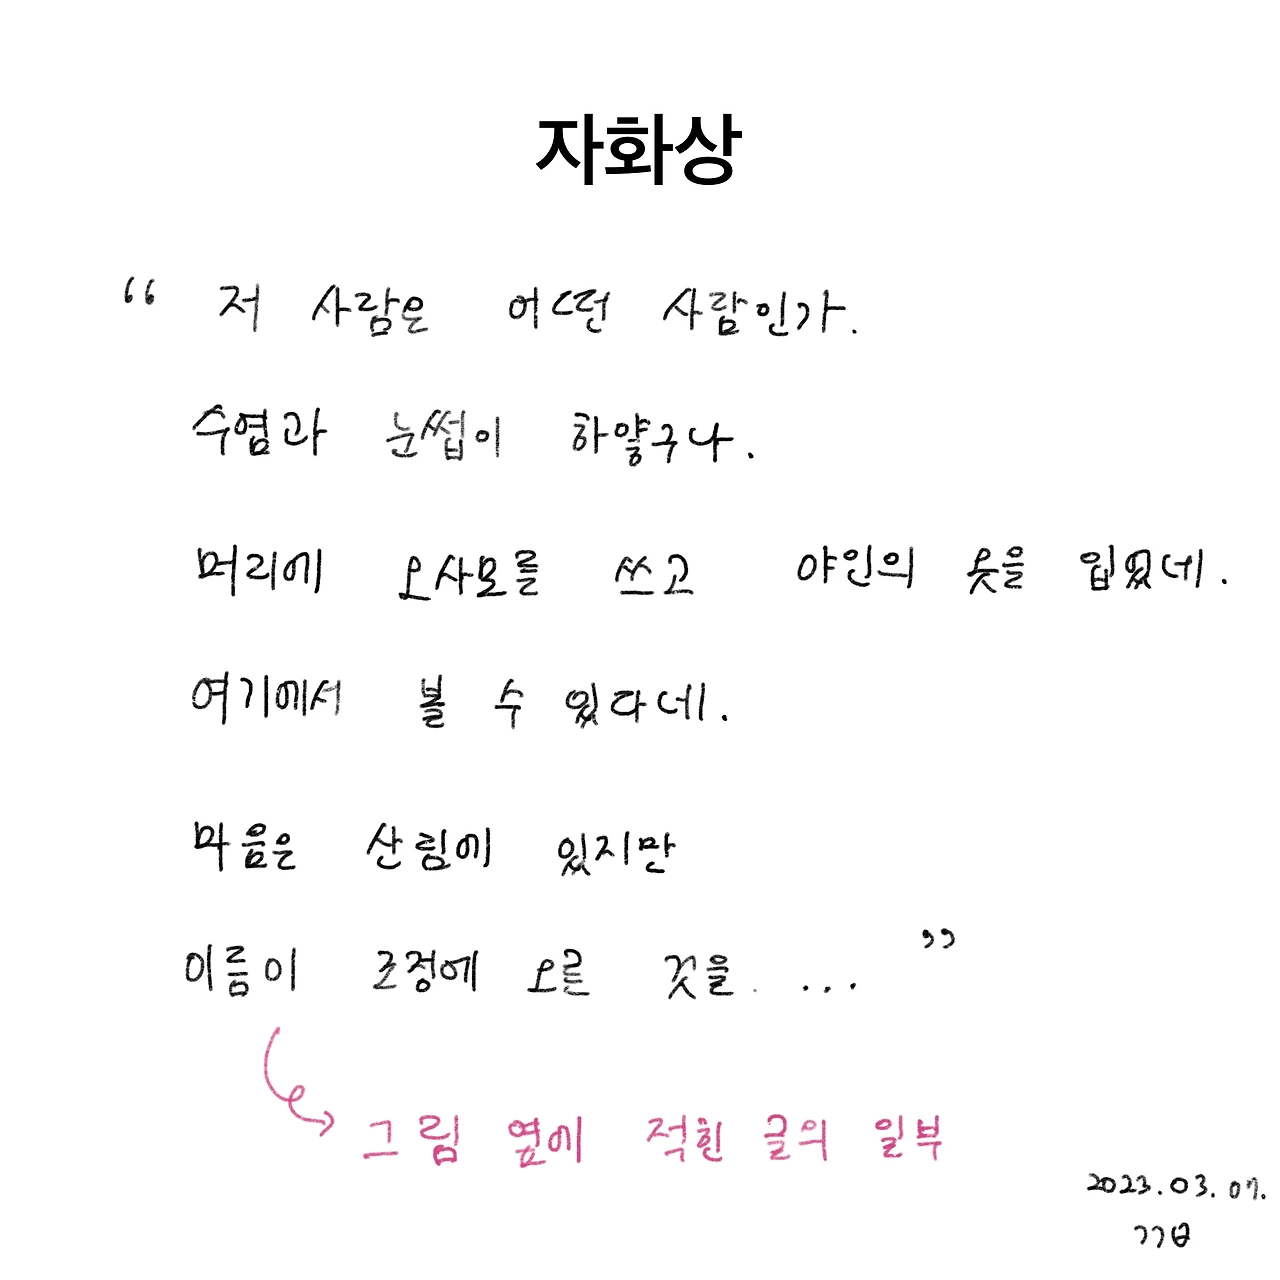 자화상
“ 저 사람은 어떤 사람인가.
수염과 눈썹이 하얗구나.
머리에 오사모를 쓰고 야인의 옷을 입었네.
여기에서 볼 수 있다네.
마음은 산림에 있지만
이름이 조정에 오른 것을. ... ”
그림 옆에 적힌 글의 일부
2023.03.07.